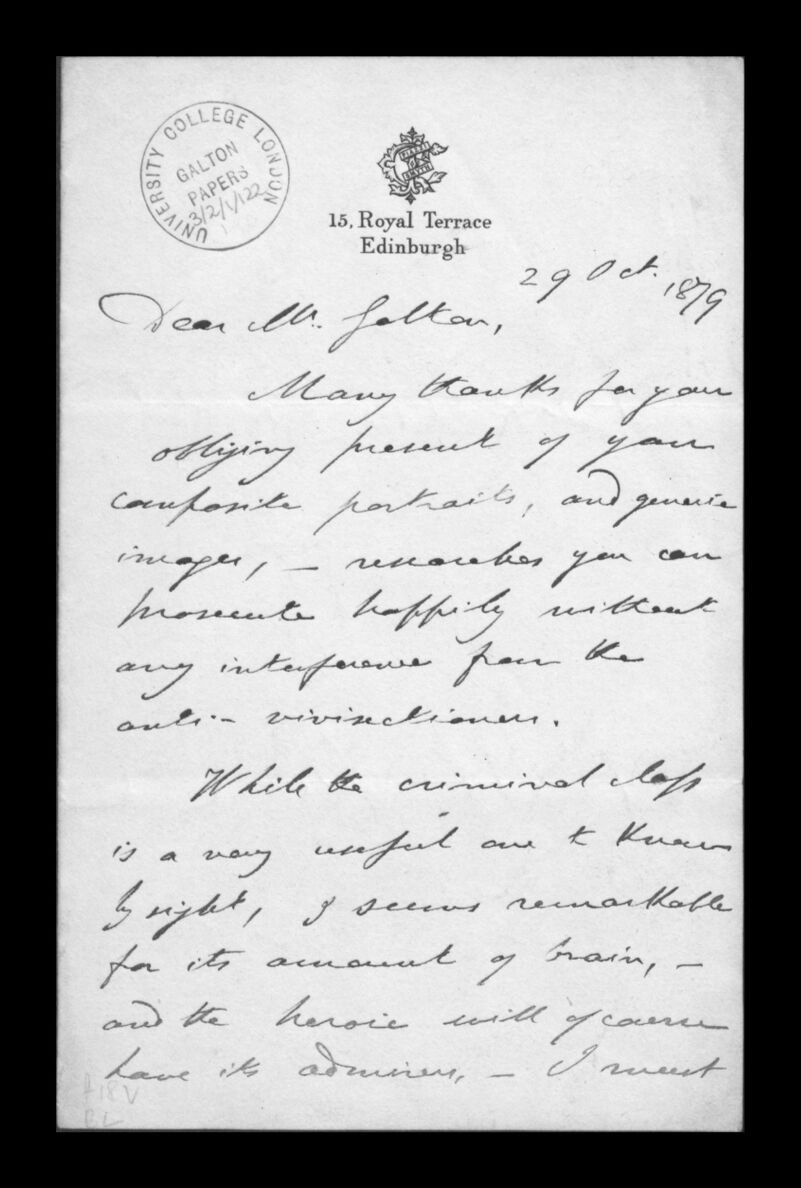 UNIVERSITY COLLEGE LONDON
GALTON
PAPERS
3/2/1/122
15, Royal Terrace
Edinburgh
29 Oct. 1879
Dear Mr. Galton,
Many thanks for your
obliging present of your
composite portraits, and generic
images, – researches you can
prosecute happily without
any interference from the
anti- vivisectioners.
While the criminal class
is a very useful one to know
by sight, & seems remarkable
for its amount of brain, –
and the heroic will of course
have its admirers, – I must